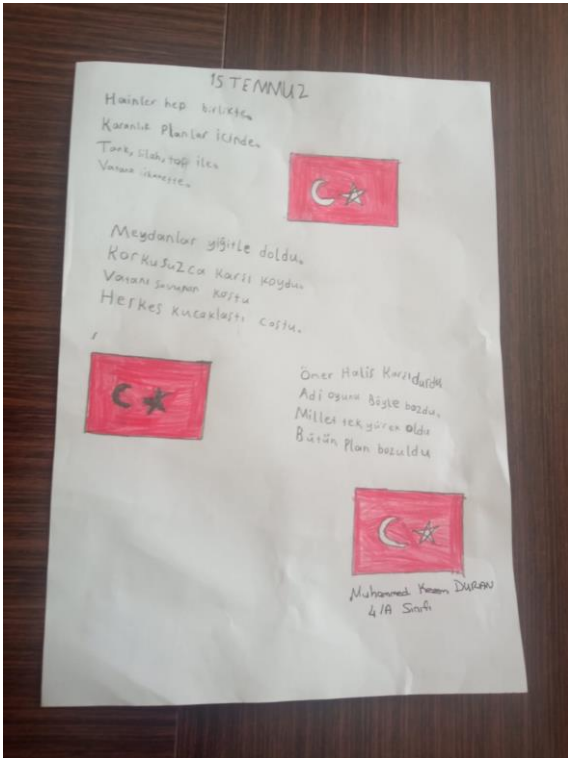 15 TEMMUZ
Hainler hep birlikte.
Karanlık Planlar içinde.
Tank, silah, top ile.
Vatana ihanette.
Meydanlar yiğitle doldu.
Korkusuzca Karşı koydu.
Vatanı savunan koştu
Herkes kucaklaştı coştu.
Ömer Halis Karşı durdu
Adi oyunu Böyle bozdu.
Millet tek yürek oldu
Bütün Plan bozuldu
Muhammed DURAN
4/A Sınıfı